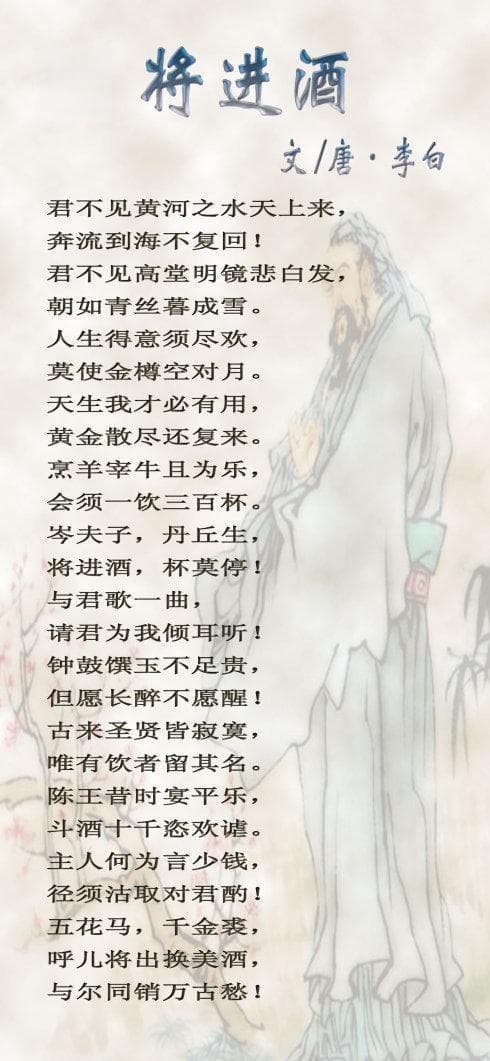 将进酒
文/唐·李白
君不见黄河之水天上来，
奔流到海不复回！
君不见高堂明镜悲白发，
朝如青丝暮成雪。
人生得意须尽欢，
莫使金樽空对月。
天生我才必有用，
黄金散尽还复来。
烹羊宰牛且为乐，
会须一饮三百杯。
岑夫子，丹丘生，
将进酒，杯莫停！
与君歌一曲，
请君为我倾耳听！
钟鼓馔玉不足贵，
但愿长醉不愿醒！
古来圣贤皆寂寞，
唯有饮者留其名。
陈王昔时宴平乐，
斗酒十千恣欢谑。
主人何为言少钱，
径须沽取对君酌！
五花马，千金裘，
呼儿将出换美酒，
与尔同销万古愁！